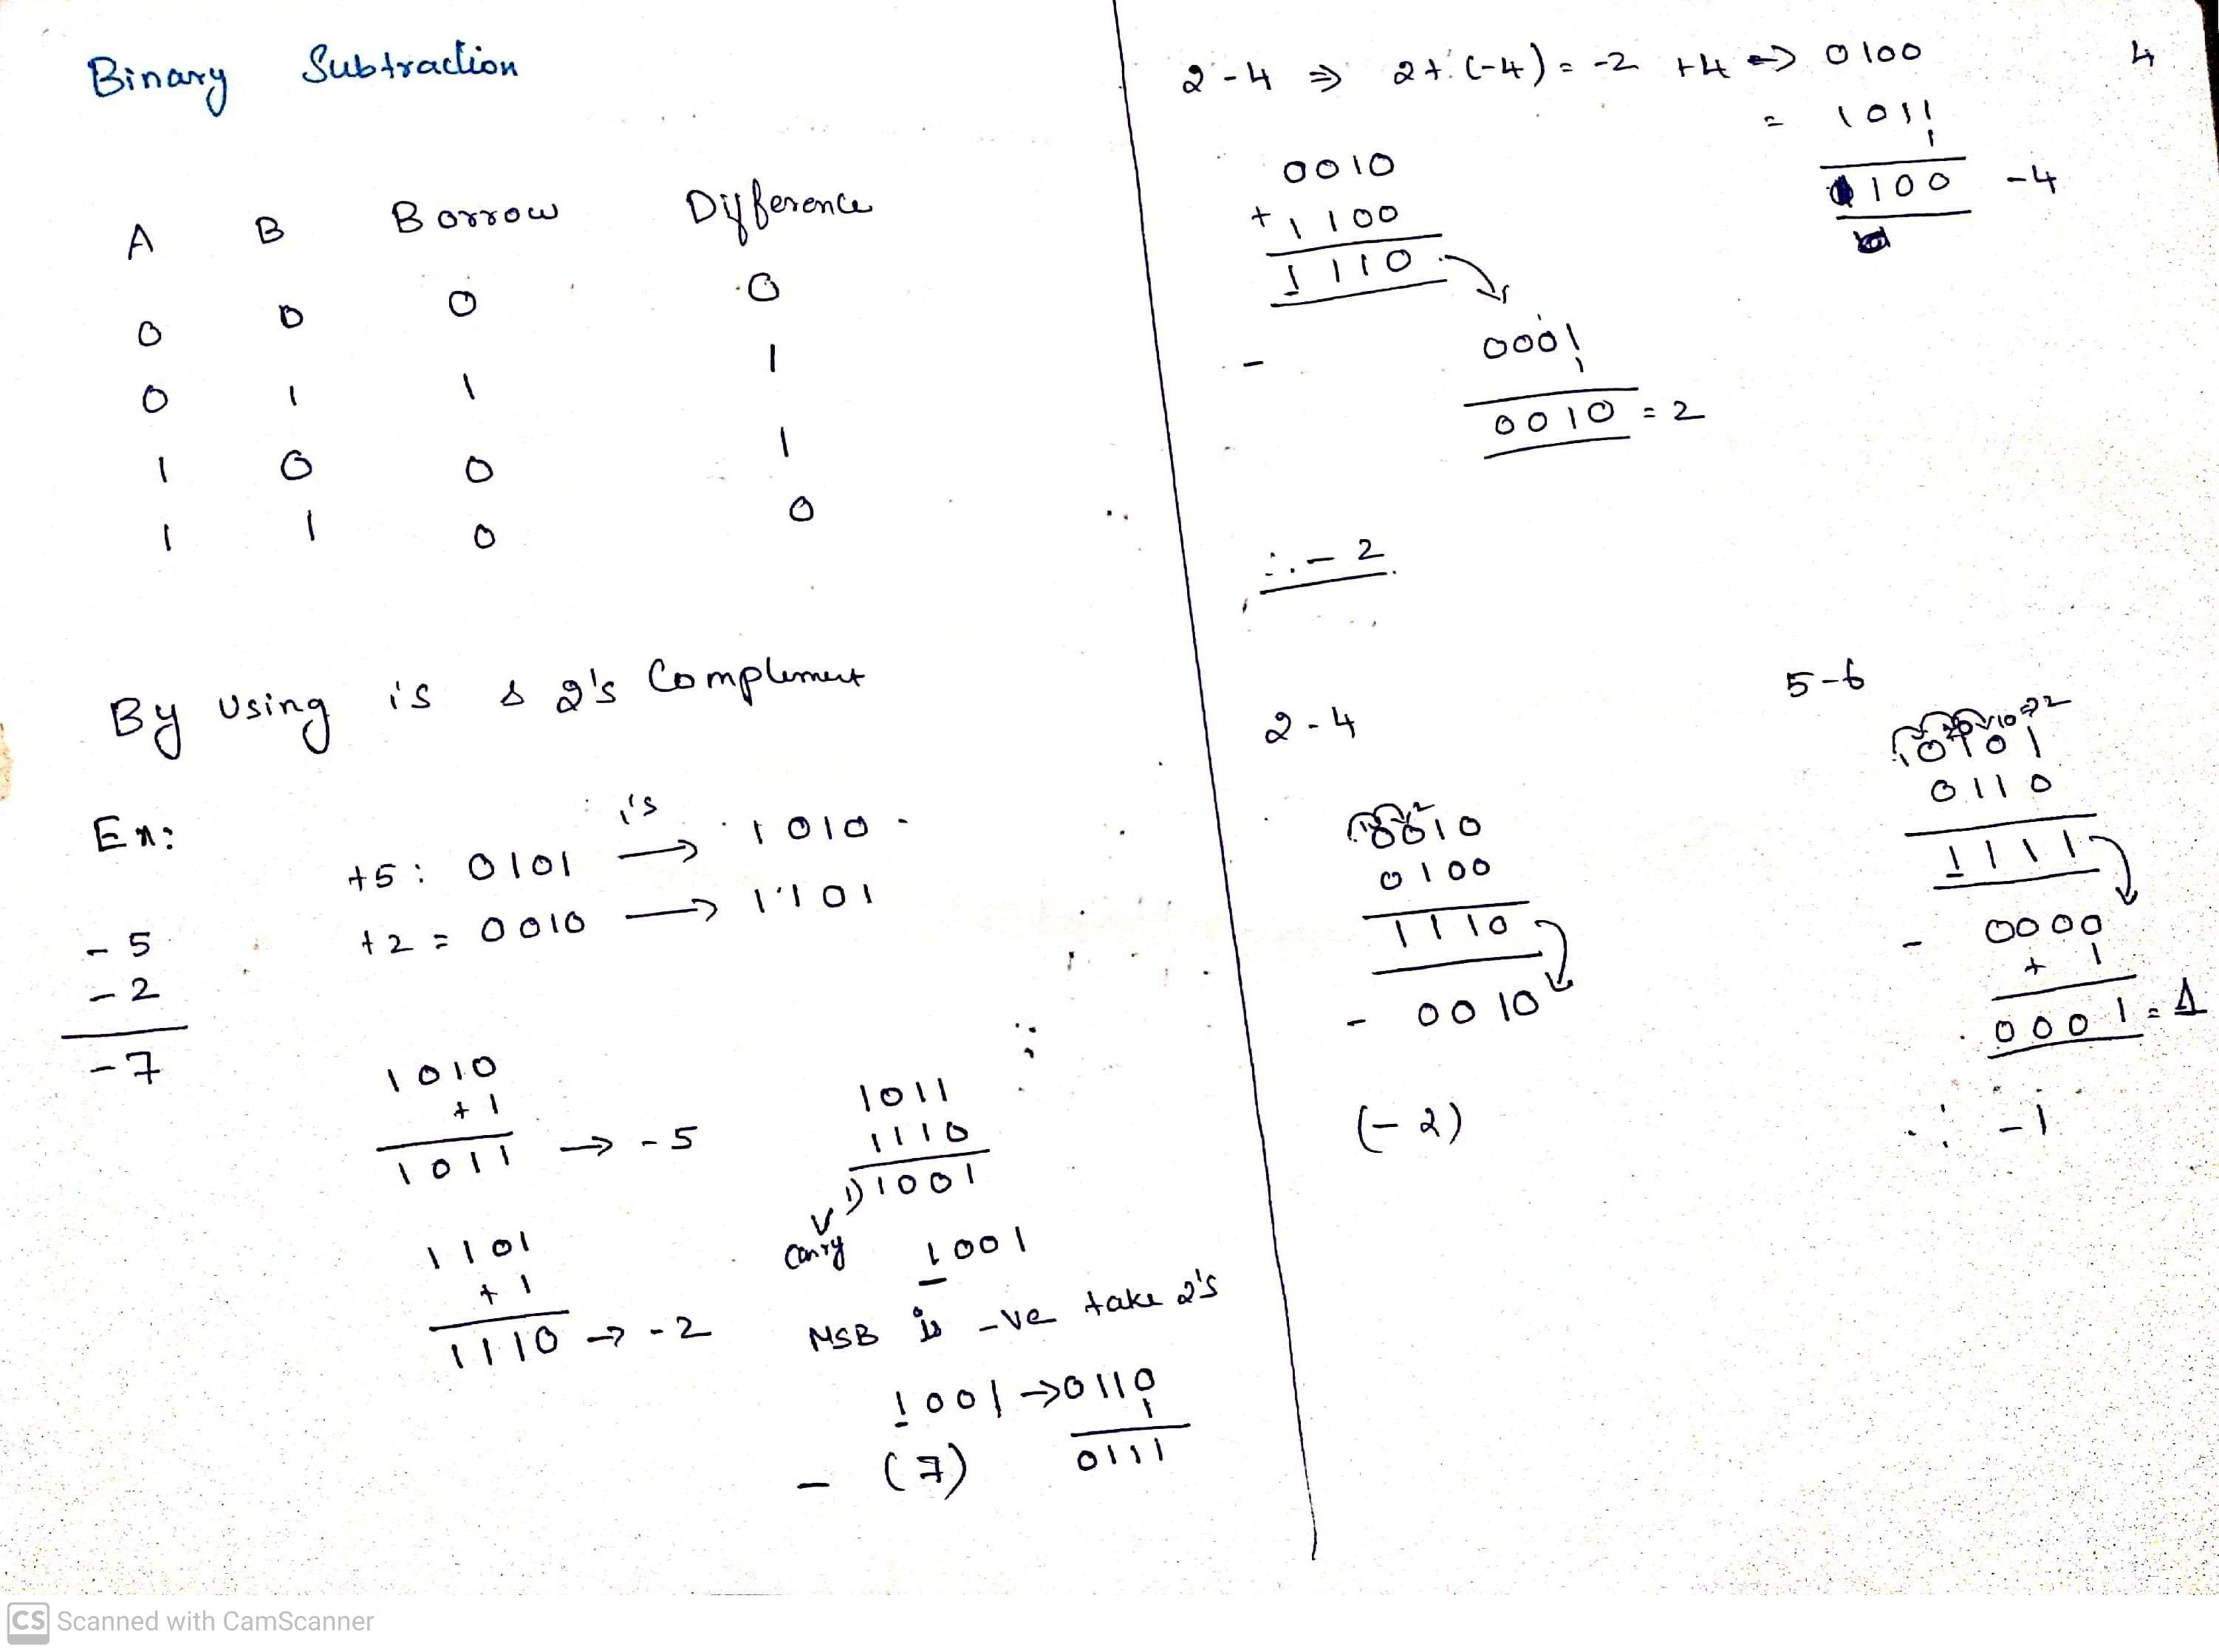 Binary Subtraction
A B Borrow Difference
0 0 0 0
0 1 1 1
1 0 0 1
1 1 0 0
By using 1's & 2's Complement
Ex:
- 5
- 2
- 7
1's
+5 : 0101 → 1010
+2 = 0010 → 1101
1010
+ 1
1011 → -5
1101
+ 1
1110 → -2
1011
1110
1) 1001
carry 1001
MSB is -ve take 2's
1001 → 0110
1
0111
- (7)
4
2-4 ⇒ 2+(-4) = -2 +4 ⇒ 0100
= 1011
1
1100 -4
0010
+ 1100
1110
- 0001
1
0010 = 2
∴ - 2
2-4
0010
0100
1110
- 0010
(-2)
5-6
0101
0110
1111
- 0000
+ 1
0001 = 1
∴ -1
CS Scanned with CamScanner